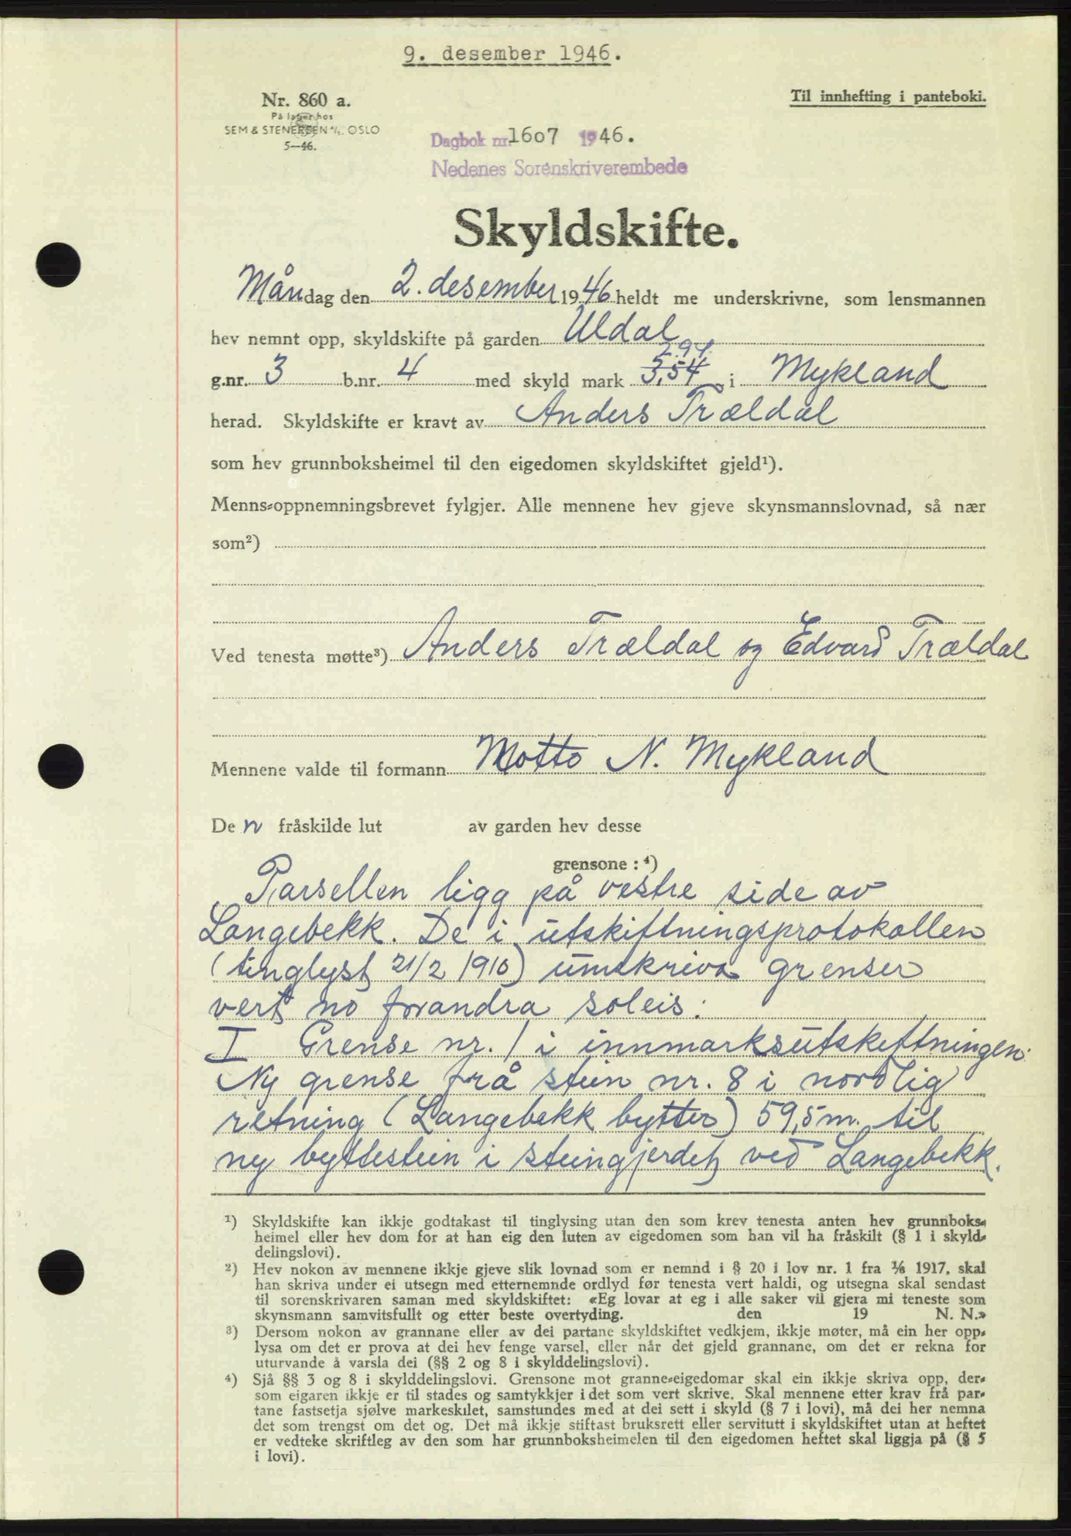 9. desember 1946.
Nr. 860 a.
På lager hos
SEM & STENERSEN A/S, OSLO
5—46.
Til innhefting i panteboki.
Dagbok nr. 1607 1946.
Nedenes Sorenskriverembede
Skyldskifte.
Måndag den 2. desember 1946 heldt me underskrivne, som lensmannen
hev nemnt opp, skyldskifte på garden Uldal
2.97
g.nr. 3 b.nr. 4 med skyld mark 3,54 i Mykland
herad. Skyldskifte er kravt av Anders Trældal
som hev grunnboksheimel til den eigedomen skyldskiftet gjeld¹).
Menns-oppnemningsbrevet fylgjer. Alle mennene hev gjeve skynsmannslovnad, så nær
som²)
Ved tenesta møtte³) Anders Trældal og Edvard Trældal
Mennene valde til formann Motto N. Mykland
De n fråskilde lut av garden hev desse
grensone : ⁴)
Parsellen ligg på vestre side av
Langebekk. De i utskiftningsprotokollen
(tinglyst 21/2 1910) umskriva grenser
vert no forandra soleis:
I Grense nr. 1 i innmarksutskiftningen:
Ny grense frå stein nr. 8 i nordlig
retning (Langebekk bytter) 59,5 m. til
ny byttestein i steingjerdet ved Langebekk.
¹) Skyldskifte kan ikkje godtakast til tinglysing utan den som krev tenesta anten hev grunnboks-
heimel eller hev dom for at han eig den luten av eigedomen som han vil ha fråskilt (§ 1 i skyld-
delingslovi).
²) Hev nokon av mennene ikkje gjeve slik lovnad som er nemnd i § 20 i lov nr. 1 fra ⅟₆ 1917, skal
han skriva under ei utsegn med etternemnde ordlyd før tenesta vert haldi, og utsegna skal sendast
til sorenskrivaren saman med skyldskiftet: «Eg lovar at eg i alle saker vil gjera mi teneste som
skynsmann samvitsfullt og etter beste overtyding. den 19 N. N.»
³) Dersom nokon av grannane eller av dei partane skyldskiftet vedkjem, ikkje møter, må ein her opp-
lysa om det er prova at dei hev fenge varsel, eller når det gjeld grannane, om det er rekna for
uturvande å varsla dei (§§ 2 og 8 i skylddelingslovi).
⁴) Sjå §§ 3 og 8 i skylddelingslovi. Grensone mot granne-eigedomar skal ein ikkje skriva opp, der-
som eigaren ikkje er til stades og samtykkjer i det som vert skrive. Skal mennene etter krav frå par-
tane fastsetja sjølve markeskilet, samstundes med at dei sett i skyld (§ 7 i lovi), må dei her nemna
det som trengst om det og. Det må ikkje stiftast bruksrett eller servitutt i skyldskiftet utan at heftet
er vedteke skriftleg av den som har grunnboksheimelen til den eigedomen heftet skal liggja på (§ 5
i lovi).